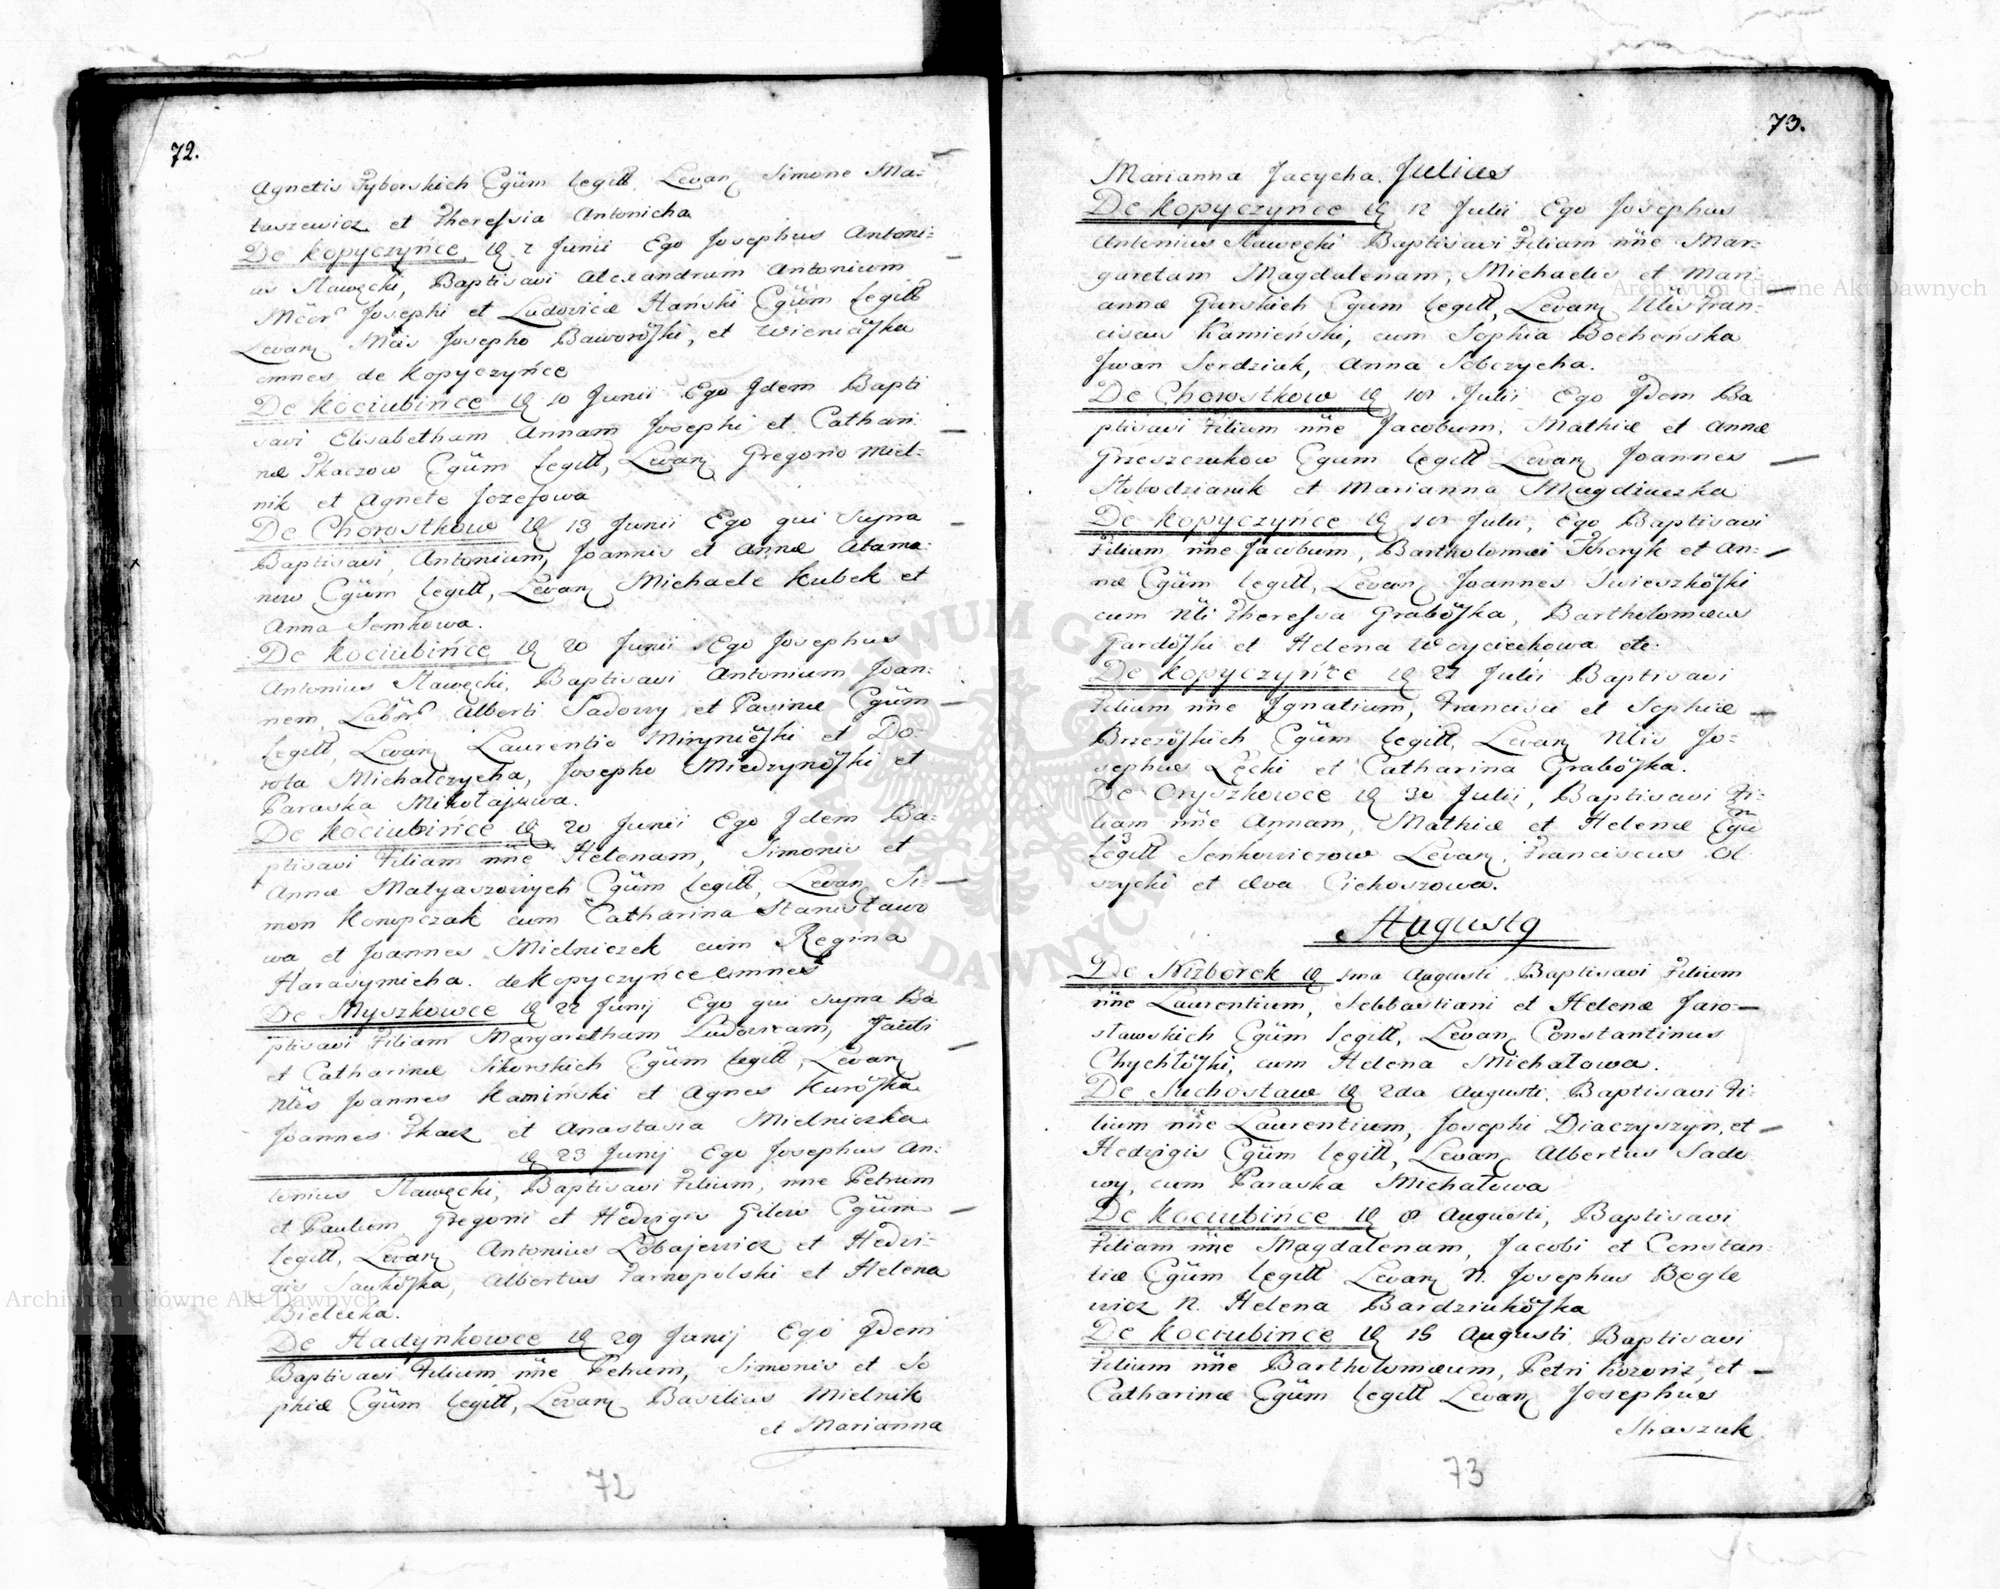 72.
Agnetis Tyborskich Cgüm legitt, Levan Simone Ma=
tuszewicz et Theressia Antonicha
De Kopyczyńce, 2 Junii Ego Josephus Antoni=
us Sławęcki, Baptisavi Alexandrum Antonium
Josephi et Ludovicæ Hański Cgüm legitt
Levan Josepho Baworöski, et
omnes de Kopyczyńce
De Kociubińce 10 Junii Ego Jdem Bapti
savi Elisabetham Annam Josephi et Cathari
næ Tkaczow Cgüm legitt, Levan Gregorio Miel=
nik et Agnete Jozefowa
De Chorostkow 13 Junii Ego qui supra
Baptisavi, Antonium, Joannis et Annæ Atama=
now Cgüm legitt, Levan Michaele Kubek et
Anna Semkowa.
De Kociubińce 20 Junii Ego Josephus
Antonius Sławęcki, Baptisavi Antonium Joan=
nem, Alberti Sadowy et Cgüm
legitt, Levan Laurentio et Do=
rota Michalczycha, Josepho Miedzynöski et
Paraska Mikołajowa.
De Kociubińce 20 Junii Ego Jdem Ba=
ptisavi Filiam nïïe Helenam, Simonis et
Annæ Matyaszowych Cgüm legitt, Levan Si=
mon Konopczak cum Catharina Stanisławo
wa et Joannes Mielniczek cum Regina
Harasymicha. de Kopyczyńce omnes
De Myszkowce 22 Junij Ego qui supra Ba
ptisavi Filiam Margaretham Ludovicam, Pauli
et Catharinæ Sikorskich Cgüm legitt, Levan
Joannes Kaminski et Agnes Kuröska
Joannes Tkacz et Anastasia Mielniczka
23 Junij Ego Josephus An=
tonius Sławęcki, Baptisavi Filium, nïïe Petrum
et Paulum Gregorii et Hedvigis Gilew Cgüm
legitt, Levan Antonius Lobajewicz et Hedvi=
gis Sauköska, Albertus Tarnopolski et Helena
Bielecka.
De Hadynkowce 29 Junij Ego Jdem
Baptisavi Filium nïïe Petrum, Simonis et So
phiæ Cgüm legitt, Levan Basilius Mielnik
et Marianna
72
73.
Marianna Jacycha. Julius
De Kopyczyńce 12 Julii Ego Josephus
Antonius Sławęcki Baptisavi Filiam nïïe Mar=
garetam Magdalenam, Michaelis et Mari=
annæ Gurskich Cgüm legitt, Levan Fran=
ciscus Kamieński, cum Sophia Bocheńska
Jwan Serdziak, Anna Sobczycha.
De Chorostkow Julii Ego Jdem Ba
ptisavi Filium nïïe Jacobum, Mathiæ et Annæ
Grzeszczukow Cgum legitt Levan Joannes
Słobodzianik et Marianna Magdziaczka
De Kopyczyńce Julii, Ego Baptisavi
Filium nïïe Jacobum, Bartholomæi et An=
næ Cgüm legitt, Levan Joannes Swieszköski
cum Theressa Graböska, Bartholomæus
Gardöski et Helena Woyciechowa etc.
De Kopyczyńce 27 Julii Baptisavi
Filium nïïe Jgnatium, Francisci et Sophiæ
Brzezöskich Cgüm legitt, Levan Jo=
sephus Łęcki et Catharina Graböska.
De Oryszkowce 30 Julii, Baptisavi Fi=
liam nïïe Annam, Mathiæ et Helenæ Cgü
legitt Senkowiczow Levan, Franciscus Ol
szycki et Æva Cichoszowa.
Augustq
De Nizborek 1ma Augusti Baptisavi Filium
nïïe Laurentium, Sebbastiani et Helenæ Jaro=
sławskich Cgüm legitt, Levan Constantinus
Chychłöski, cum Helena Michałowa.
De Suchostaw 2da Augusti, Baptisavi Fi=
lium nïïe Laurentium, Josephi Diaczyszyn, et
Hedvigis Cgüm legitt, Levan Albertus Sado
wy, cum Paraska Michałowa
De Kociubińce 8 Augusti, Baptisavi
Filiam nïïe Magdalenam, Jacobi et Constan=
tiæ Cgüm legitt Levan N. Josephus Bogle
wicz N. Helena Bardziuköska
De Kociubince 15 Augusti Baptisavi
Filium nïïe Bartholomæum, Petri et
Catharinæ Cgüm legitt Levan Josephus
Straszak
73
Archiwum Główne Akt Dawnych
Archiwum Główne Akt Dawnych
ARCHIWUM GŁÓWNE AKT DAWNYCH